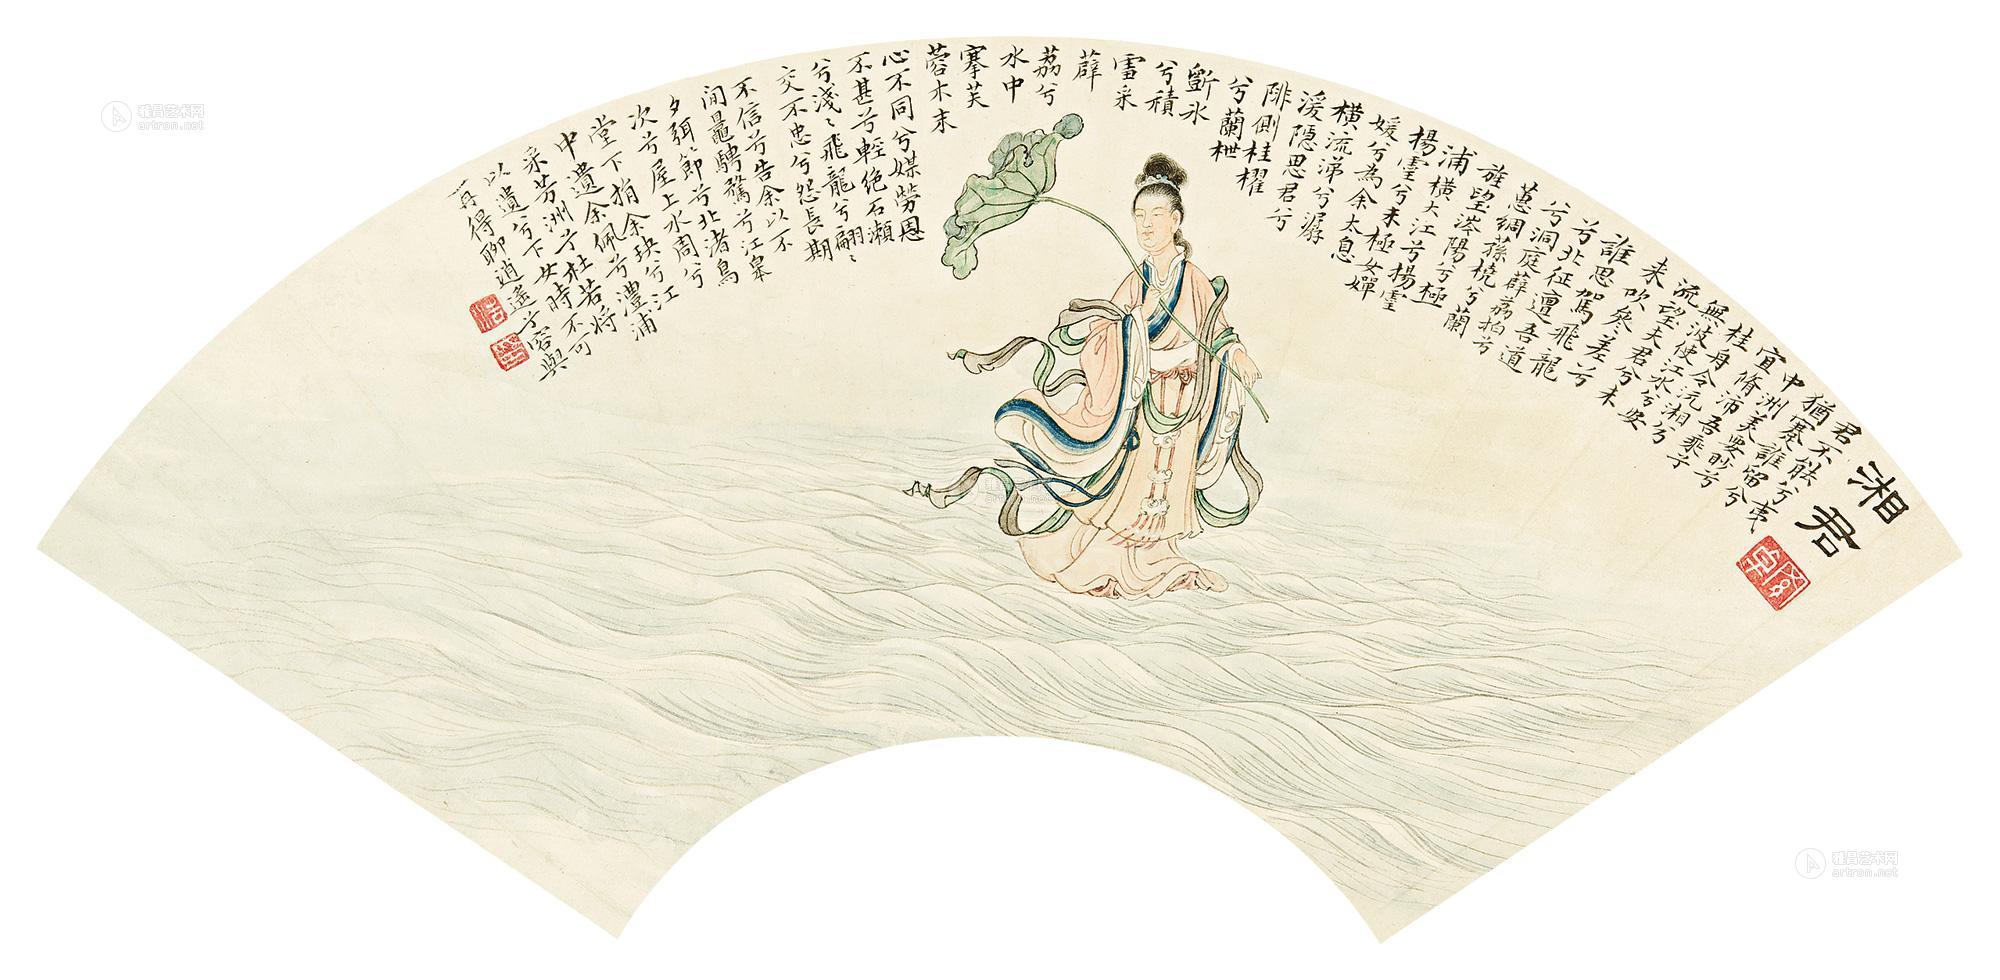 湘君
君不能兮夷
猶蹇誰留兮
中洲美要眇兮
宜脩沛吾乘兮
桂舟令沅湘兮
無波使江水兮安
流望夫君兮未
來吹參差兮
誰思駕飛龍
兮北征邅吾道
兮洞庭薜荔拍兮
蕙綢蓀橈兮蘭
旌望涔陽兮極
浦橫大江兮楊靈
楊靈兮未極女嬋
媛兮為余太息
橫流涕兮潺
湲隱思君兮
陫側桂櫂
兮蘭枻
斲冰
兮積
雪采
薜
荔兮
水中
搴芙
蓉木末
心不同兮媒勞恩
不甚兮輕絕石瀨
兮淺〻飛龍兮翩〻
交不忠兮怨長期
不信兮告余以不
間鼂騁騖兮江皋
夕弭節兮北渚鳥
次兮屋上水周兮
堂下捐余玦兮江
中遺余佩兮澧浦
采芳洲兮杜若將
以遺兮下女時不可
再得聊逍遙兮容與
雅昌艺术网
artron.net
雅昌艺术网
artron.net